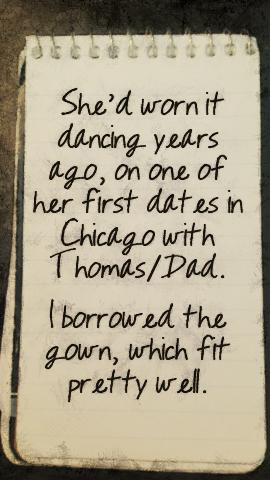 She'd worn it
dancing years
ago, on one of
her first dates in
Chicago with
Thomas/Dad.
I borrowed the
gown, which fit
pretty well.